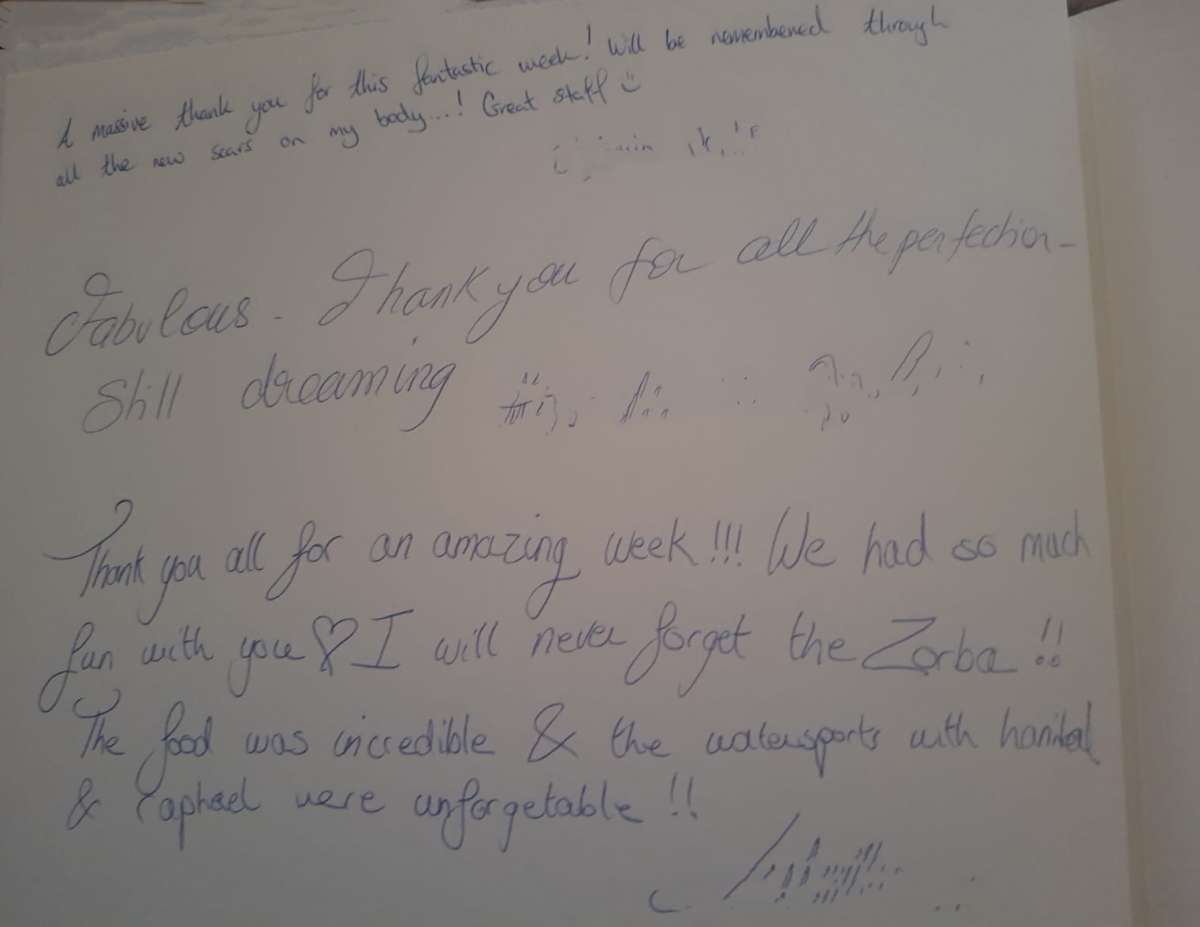 A massive thank you for this fantastic week! Will be remembered through
all the new scars on my body...! Great staff
Fabulous. Thank you for all the perfection -
Still dreaming
Thank you all for an amazing week!!! We had so much
fun with you ♡ I will never forget the Zorba!!
The food was incredible & the watersports with hanibal
& raphael were unforgetable!!